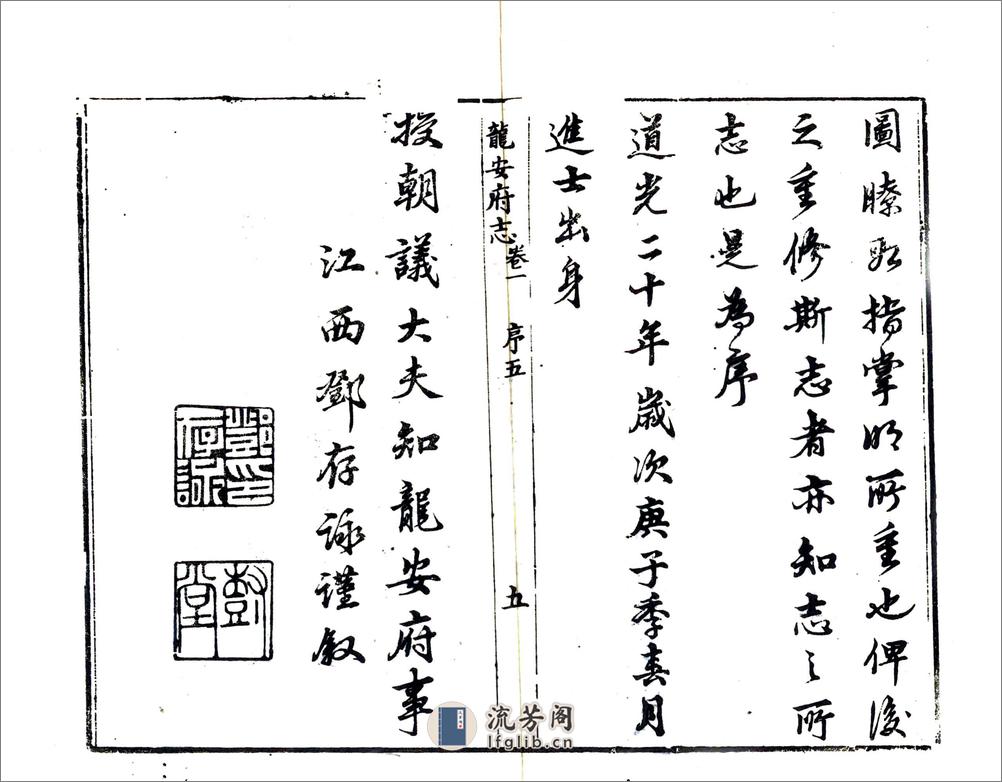 圖瞭取指掌明所重也俾後
之重修斯志者亦知志之所
志也是為序
道光二十年歲次庚子季春月
進士出身
龍安府志 卷一 序五 五
授朝議大夫知龍安府事
江西鄧存詠謹叙
鄧印存詠
彭堂
流芳阁
lfglib.cn